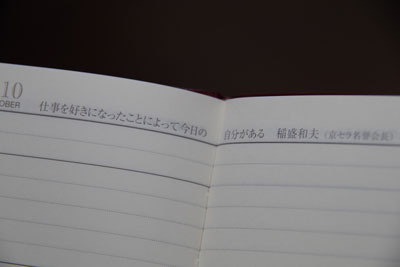 10
OBER
仕事を好きになったことによって今日の自分がある 稲盛和夫（京セラ名誉会長）